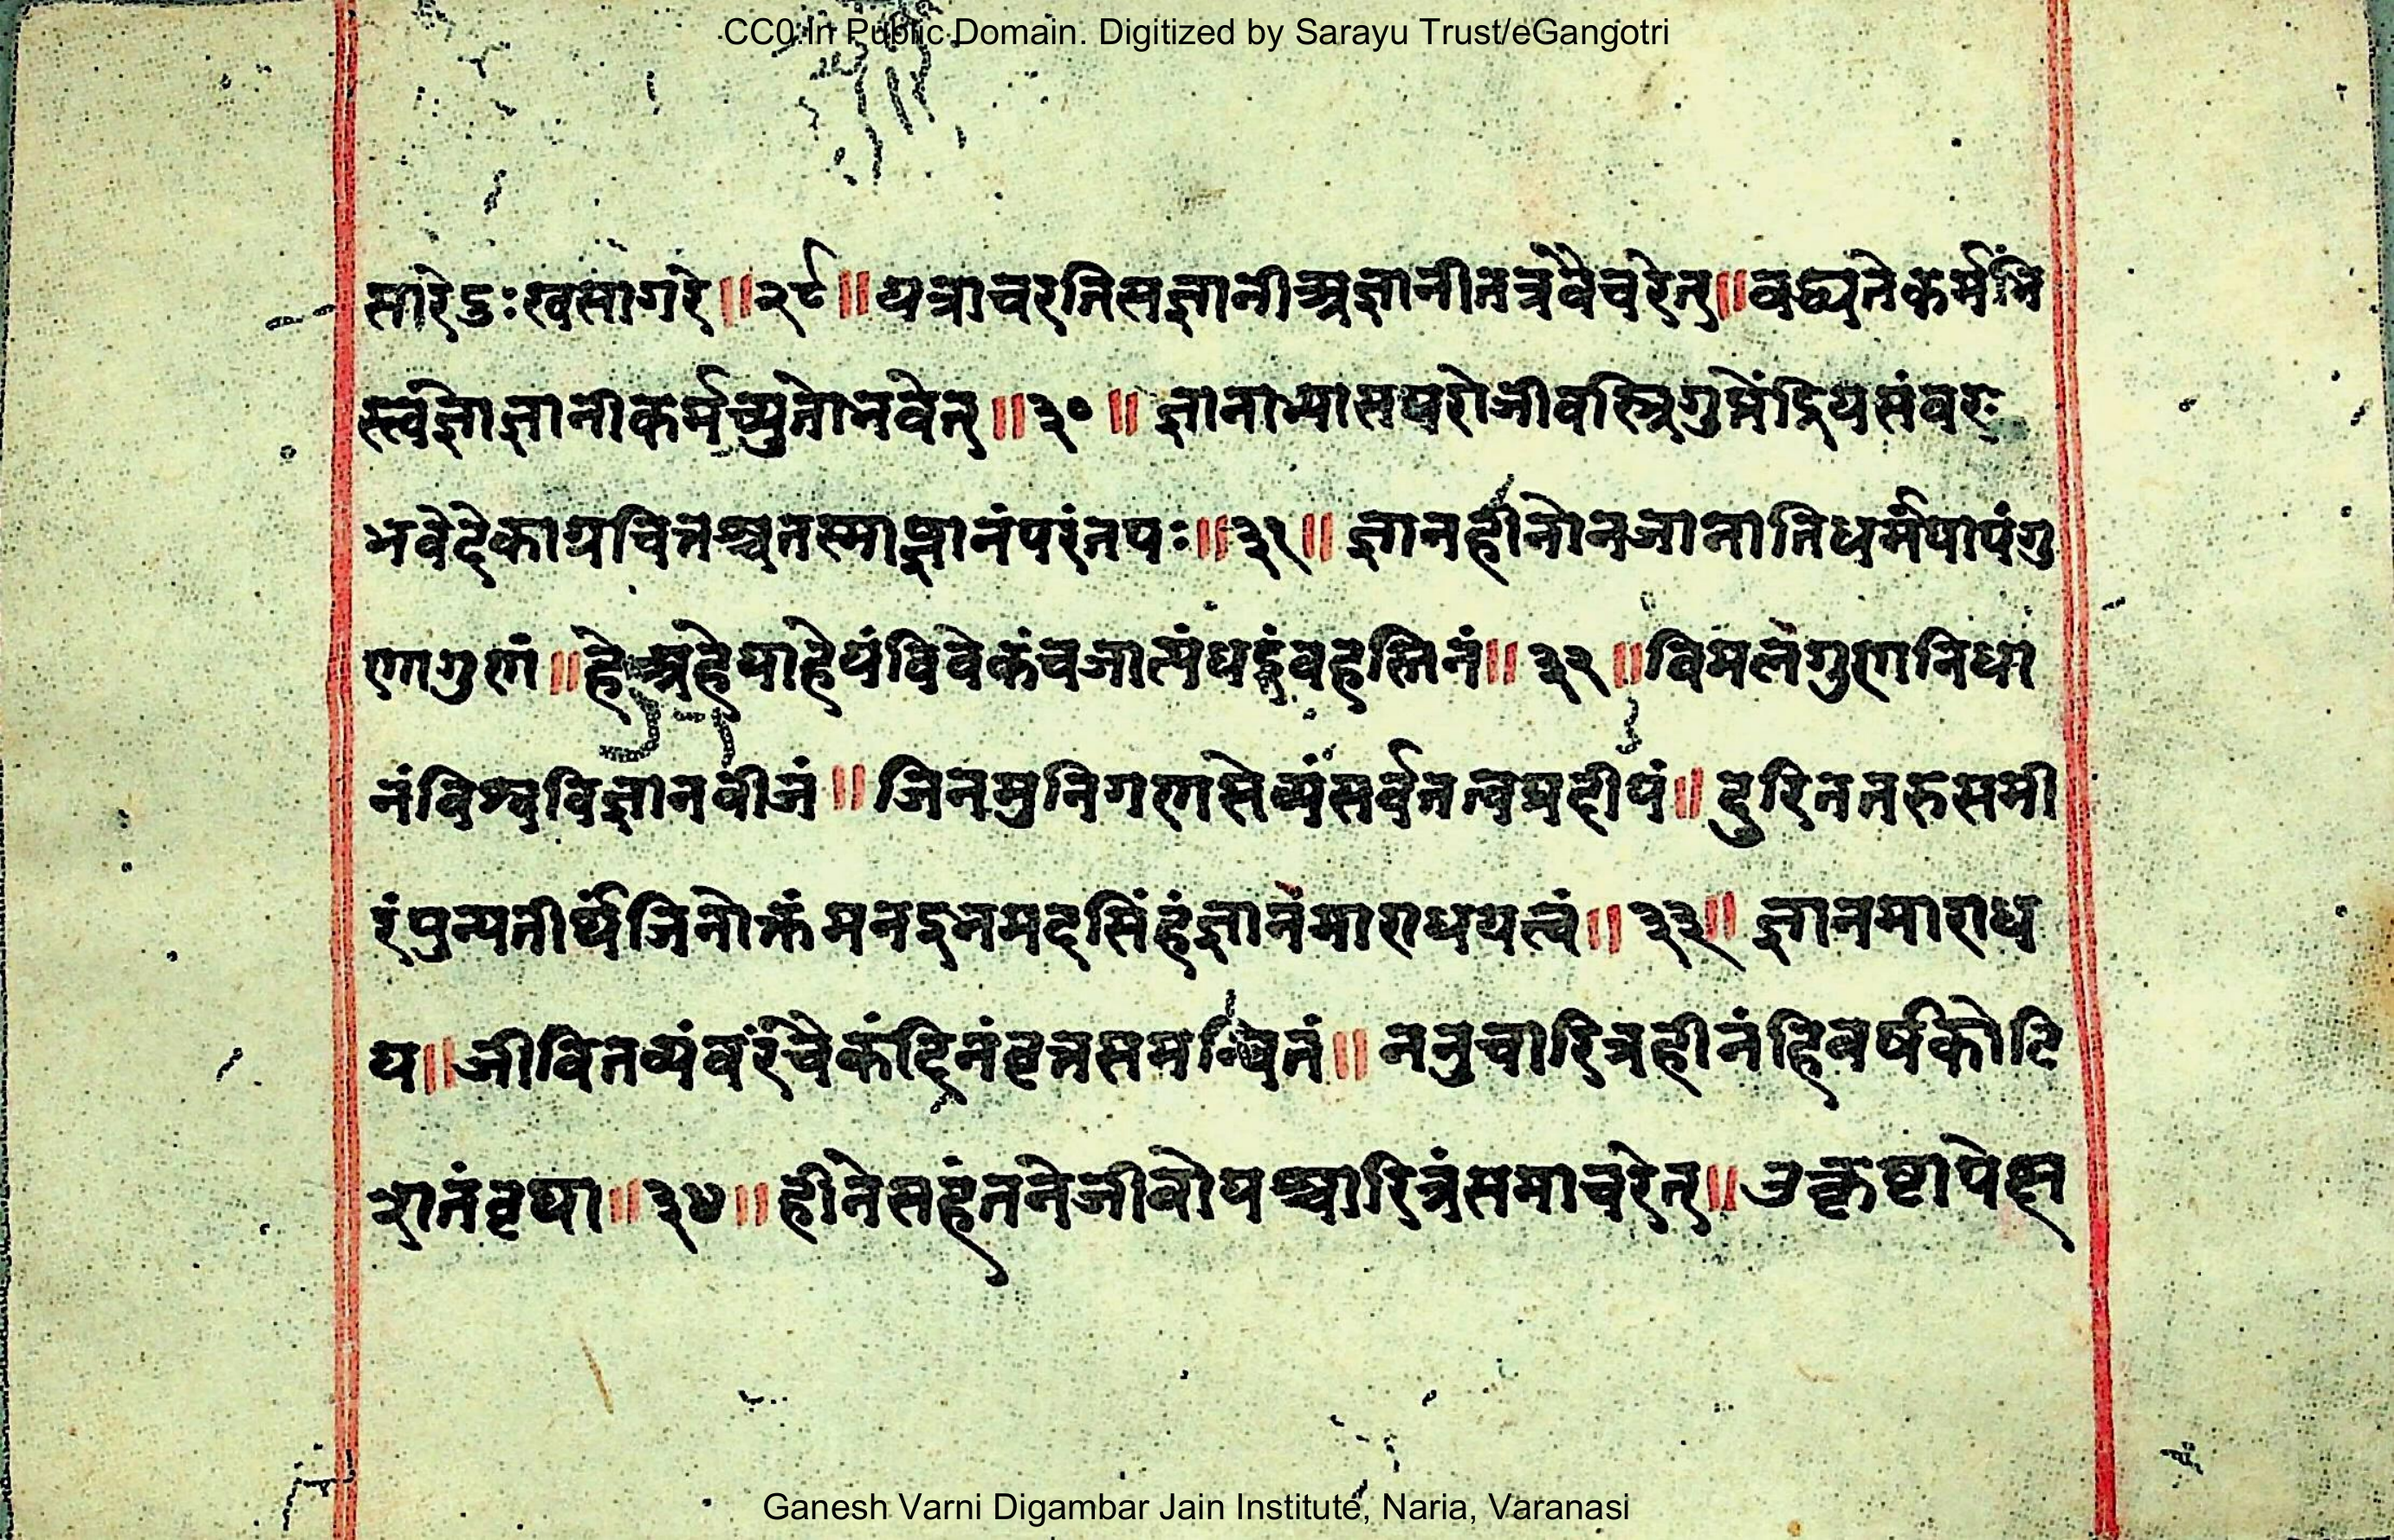 CC0.In Public Domain. Digitized by Sarayu Trust/eGangotri
सारेदुःखसागरे॥२९॥यत्राचरतिसज्ञानीअज्ञानीतत्रवैचरेत्॥वद्ध्यतेकर्मभि
स्त्वज्ञोज्ञानीकर्मच्युतोभवेत्॥३०॥ज्ञानाभ्यासपरोजीवस्त्रिगुप्तेंद्रियसंवरः
भवेदेकाग्रचित्तश्चतस्माज्ञानंपरंतपः॥३१॥ज्ञानहीनोनजानातिधर्मंपापंगु
णागुणं॥हेअहेयाहेयंविवेकंचजात्यंधइवहस्तिनं॥३२॥विमलगुणनिधा
नंविश्वविज्ञानवीजं॥जिनमुनिगणसेव्यंसर्वतत्वप्रदीपं॥दुरिततरुसमी
रंपुन्यतीर्थंजिनोक्तंमनइनमदसिंहंज्ञानमाराधयत्वं॥३३॥ज्ञानमाराध
य॥जीवितव्यंवरंचैकंदिनंवृत्तसमन्वितं॥नतुचारित्रहीनंहिवर्षकोटि
शतंवृथा॥३४॥हीनेसहंननेजीवोयश्चारित्रंसमाचरेत्॥उत्कृष्टापेक्ष
Ganesh Varni Digambar Jain Institute, Naria, Varanasi